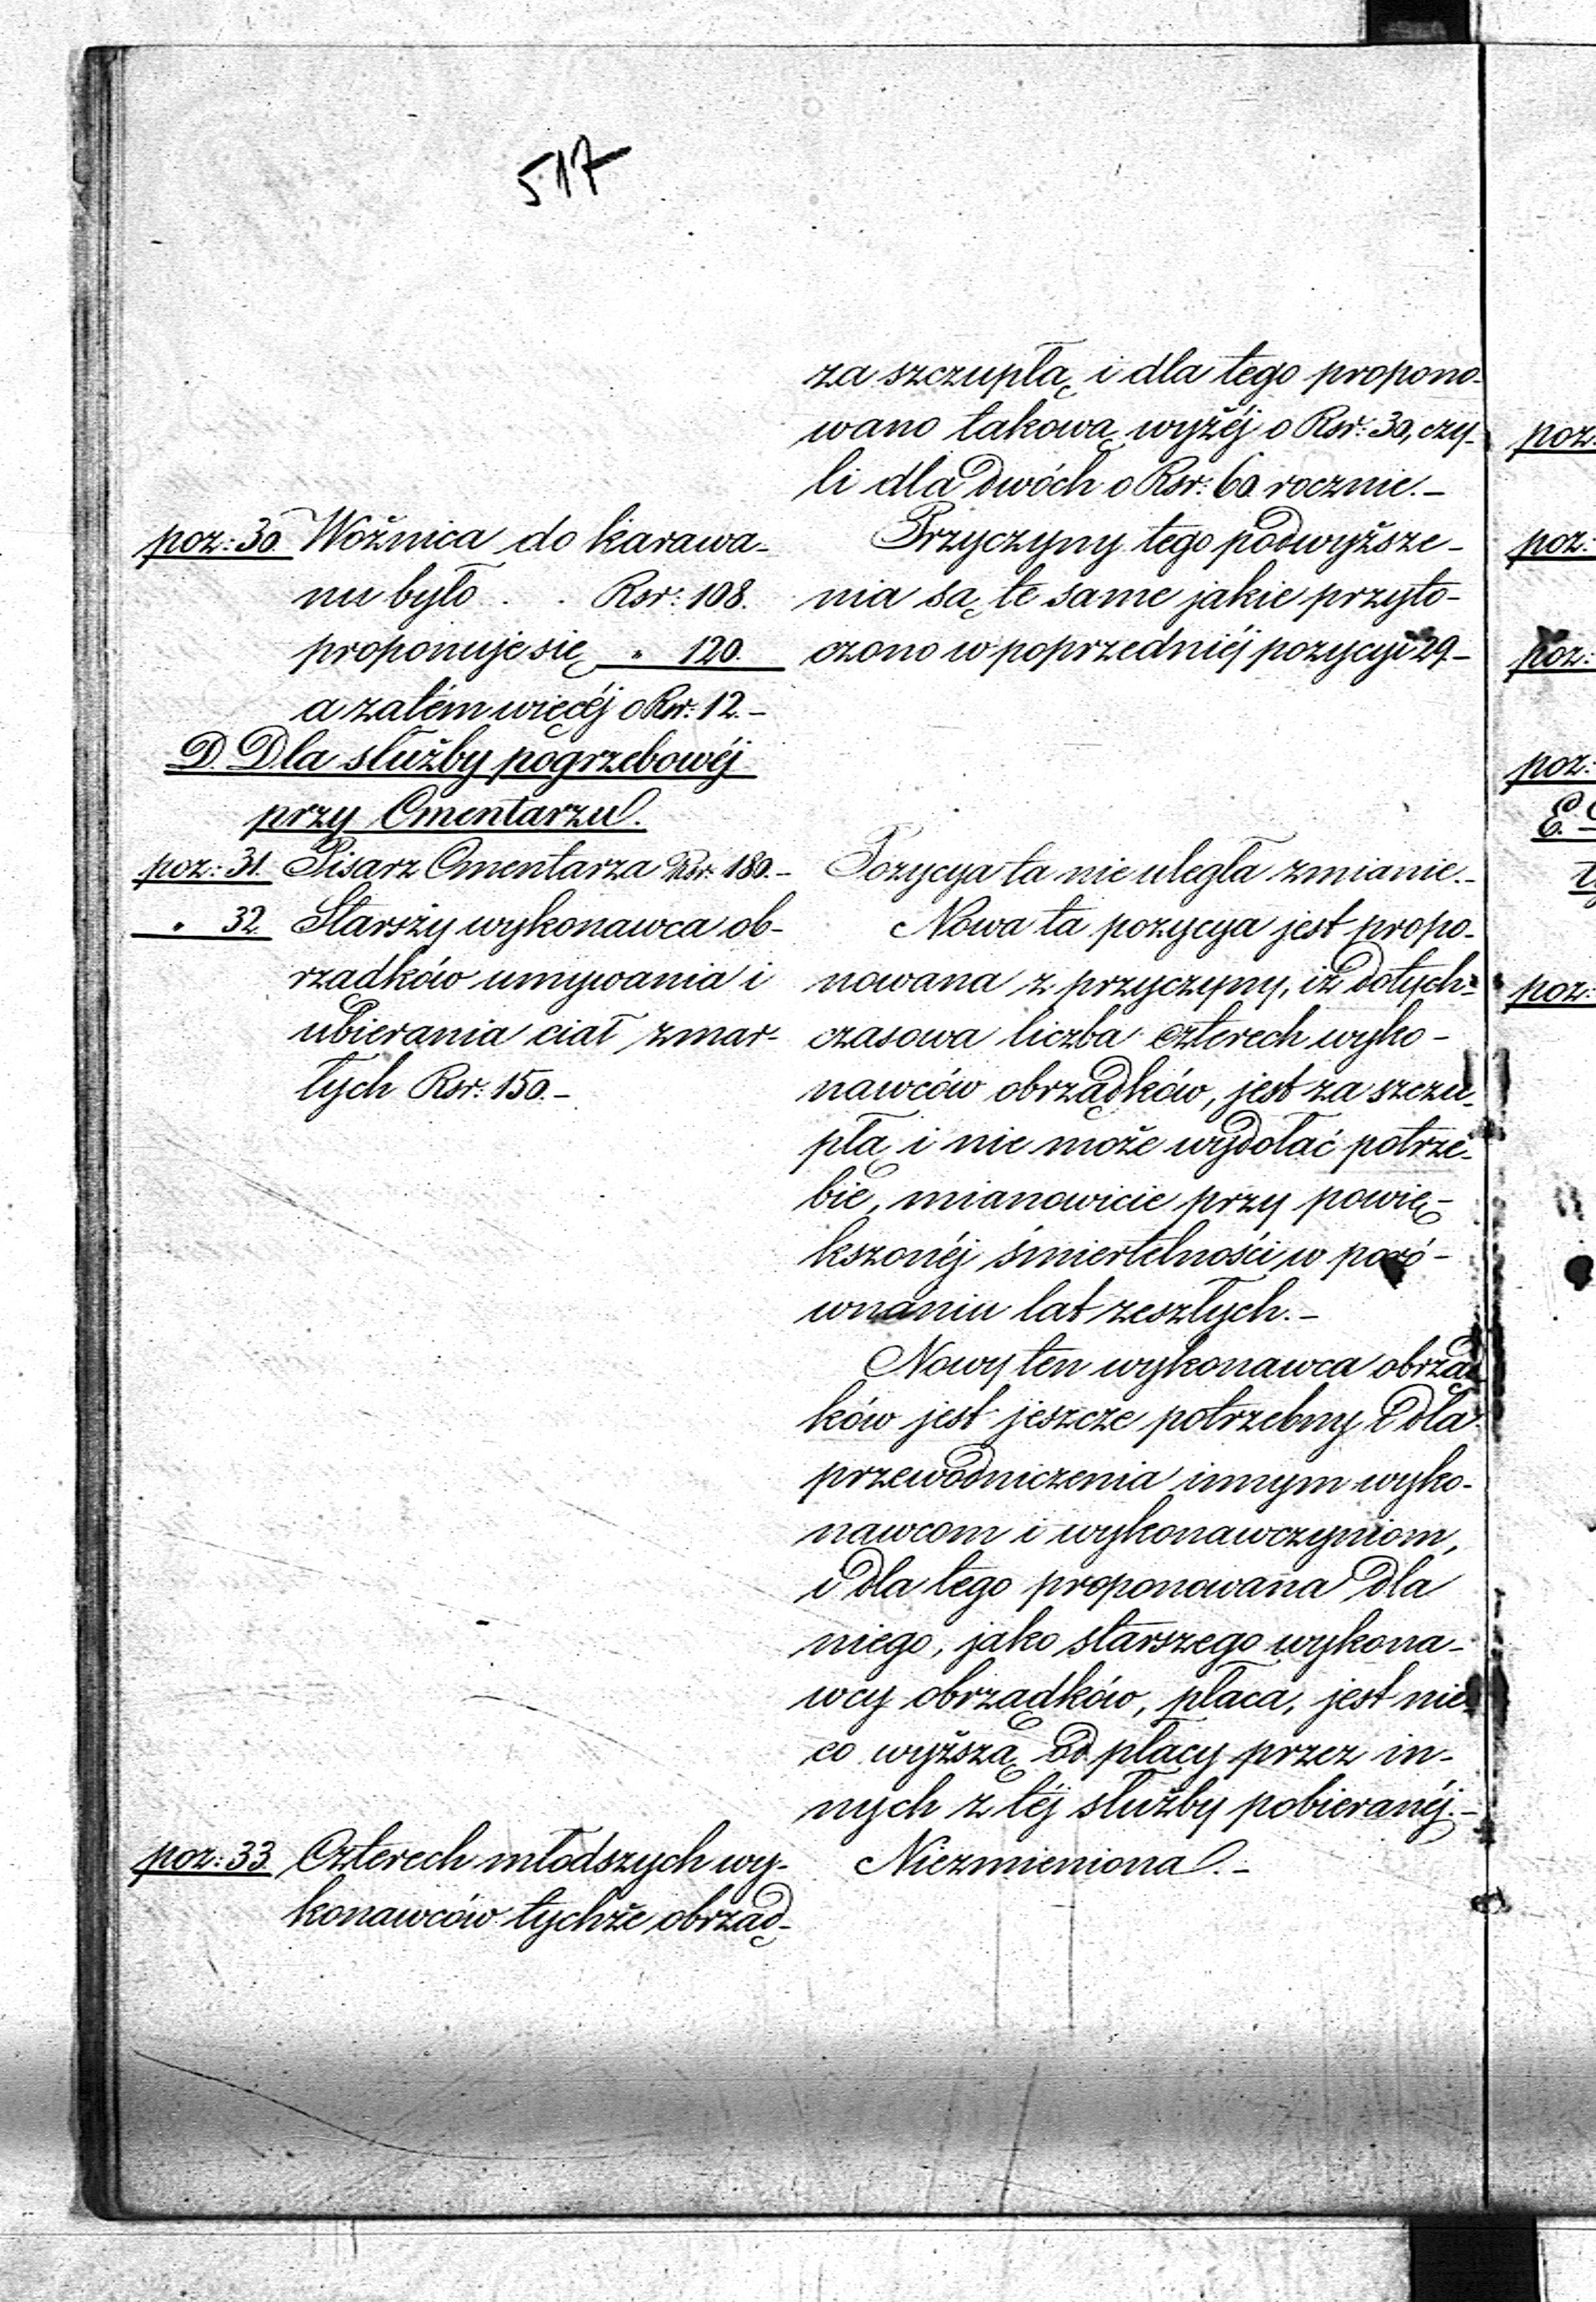 517
za szczupłą i dla tego propono-
wano takową wyżéj o Rsr: 30, czy-
li dla dwóch o Rsr: 60 rocznie.-
poz: 30. Woźnica do karawa-
nu było . . Rsr: 108.
proponuje się " 120.
a zatém więcéj o Rsr: 12.-
Przyczyny tego podwyższe-
nia są te same jakie przyto-
czono w poprzedniéj pozycyi 29.-
D. Dla służby pogrzebowéj
przy Cmentarzu.
poz: 31. Pisarz Cmentarza Rsr: 180.-
Pozycya ta nie uległa zmianie.-
" 32. Starszy wykonawca ob-
rządków umywania i
ubierania ciał zmar-
łych Rsr: 150.-
Nowa ta pozycya jest propo-
nowana z przyczyny, iż dotych-
czasowa liczba czterech wyko-
nawców obrządków, jest za szczu-
płą i nie może wydołać potrze-
bie, mianowicie przy powię-
kszonéj śmiertelności w poró-
wnaniu lat zeszłych.-
Nowy ten wykonawca obrząd
ków jest jeszcze potrzebny i dla
przewodniczenia innym wyko-
nawcom i wykonawczyniom,
i dla tego proponowana dla
niego, jako starszego wykona-
wcy obrządków, płaca, jest nie
co wyższą od płacy przez in-
nych z téj służby pobieranéj.-
poz: 33. Czterech młodszych wy-
konawców tychże obrząd-
Niezmieniona.-
poz:
poz:
poz:
poz:
E.
poz: